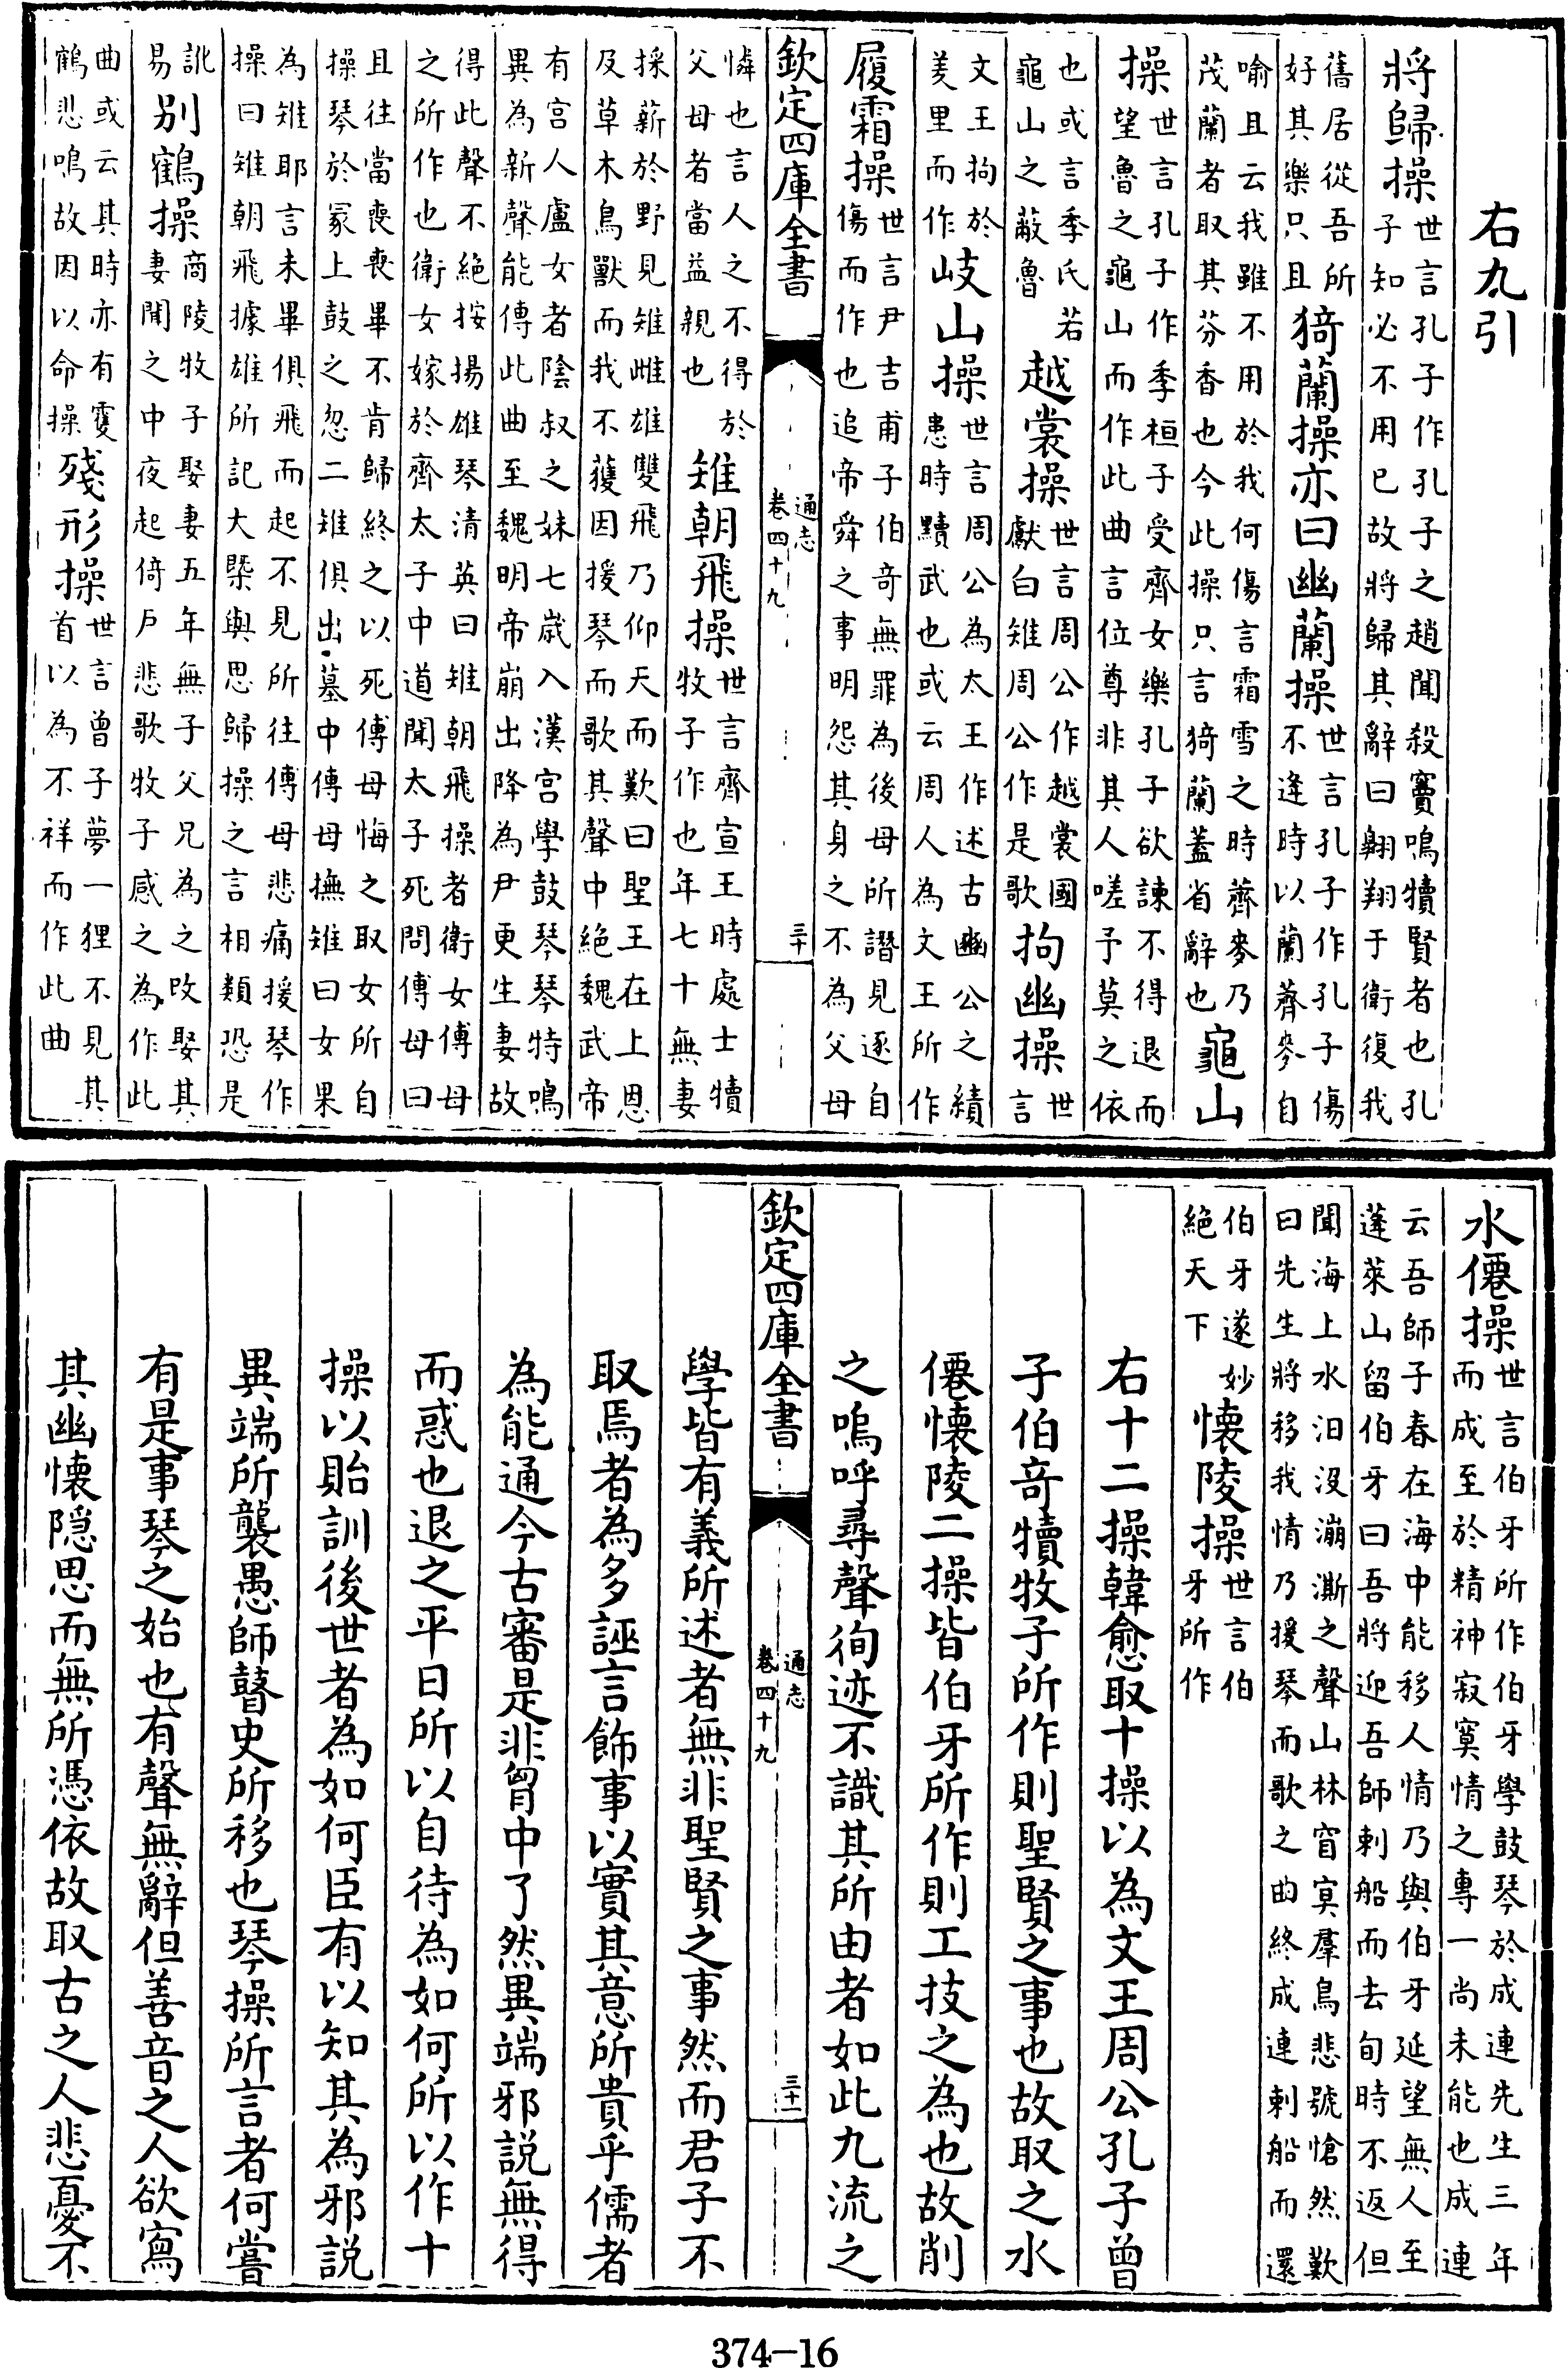 右九引
將歸操世言孔子作孔子之趙聞殺竇鳴犢賢者也孔
子知必不用已故將歸其辭曰翺翔于衛復我
舊居從吾所
好其樂只且猗蘭操亦曰幽蘭操世言孔子作孔子傷
不逢時以蘭薺麥自
喻且云我雖不用於我何傷言霜雪之時薺麥乃
茂蘭者取其芬香也今此操只言猗蘭蓋省辭也龜山
操世言孔子作季桓子受齊女樂孔子欲諫不得退而
望魯之龜山而作此曲言位尊非其人嗟予莫之依
也或言季氏若
龜山之蔽魯越裳操世言周公作越裳國
獻白雉周公作是歌拘幽操世
言
文王拘於
羑里而作岐山操世言周公為太王作述古豳公之績
患時黷武也或云周人為文王所作
履霜操世言尹吉甫子伯奇無罪為後母所譖見逐自
傷而作也追帝舜之事明怨其身之不為父母
欽定四庫全書
通志
卷四十九
三十
憐也言人之不得於
父母者當益親也雉朝飛操世言齊宣王時處士犢
牧子作也年七十無妻
採薪於野見雉雌雄雙飛乃仰天而歎曰聖王在上恩
及草木鳥獸而我不獲因援琴而歌其聲中絶魏武帝
有宫人盧女者陰叔之妹七歲入漢宫學鼓琴琴特鳴
異為新聲能傳此曲至魏明帝崩出降為尹更生妻故
得此聲不絶按揚雄琴清英曰雉朝飛操者衛女傅母
之所作也衛女嫁於齊太子中道聞太子死問傅母曰
且往當喪喪畢不肯歸終之以死傅母悔之取女所自
操琴於冢上鼓之忽二雉俱出墓中傅母撫雉曰女果
為雉耶言未畢俱飛而起不見所往傅母悲痛援琴作
操曰雉朝飛據雄所記大槩與思歸操之言相類恐是
訛
易别鶴操商陵牧子娶妻五年無子父兄為之改娶其
妻聞之中夜起倚戶悲歌牧子感之為作此
曲或云其時亦有䨥
鶴悲鳴故因以命操殘形操世言曾子夢一狸不見其
首以為不祥而作此曲
水僊操世言伯牙所作伯牙學鼓琴於成連先生三年
而成至於精神寂寞情之專一尚未能也成連
云吾師子春在海中能移人情乃與伯牙延望無人至
蓬萊山留伯牙曰吾將迎吾師刺船而去旬時不返但
聞海上水汨没漰澌之聲山林窅㝠羣鳥悲號愴然歎
曰先生將移我情乃援琴而歌之曲終成連刺船而還
伯牙遂妙
絶天下懷陵操世言伯
牙所作
右十二操韓愈取十操以為文王周公孔子曾
子伯奇犢牧子所作則聖賢之事也故取之水
僊懷陵二操皆伯牙所作則工技之為也故削
之嗚呼尋聲徇迹不識其所由者如此九流之
欽定四庫全書
通志
卷四十九
三十一
學皆有義所述者無非聖賢之事然而君子不
取焉者為多誣言飾事以實其意所貴乎儒者
為能通今古審是非胷中了然異端邪説無得
而惑也退之平日所以自待為如何所以作十
操以貽訓後世者為如何臣有以知其為邪説
異端所襲愚師瞽史所移也琴操所言者何嘗
有是事琴之始也有聲無辭但善音之人欲寫
其幽懷隠思而無所憑依故取古之人悲憂不
374-16